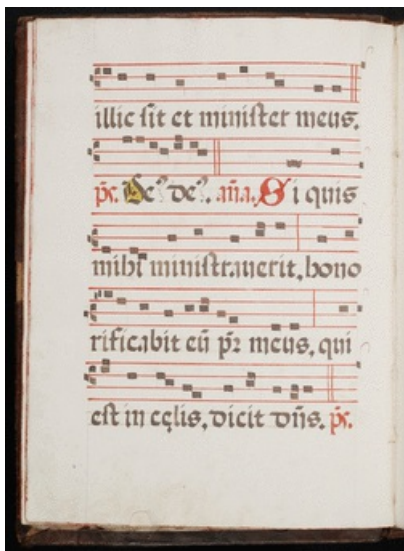 illic sit et minister meus.
ps. De⁹ de⁹. aña. Si quis
mihi ministrauerit, hono
rificabit eū pr̄ meus, qui
est in cęlis, dicit dn̄s. ps.